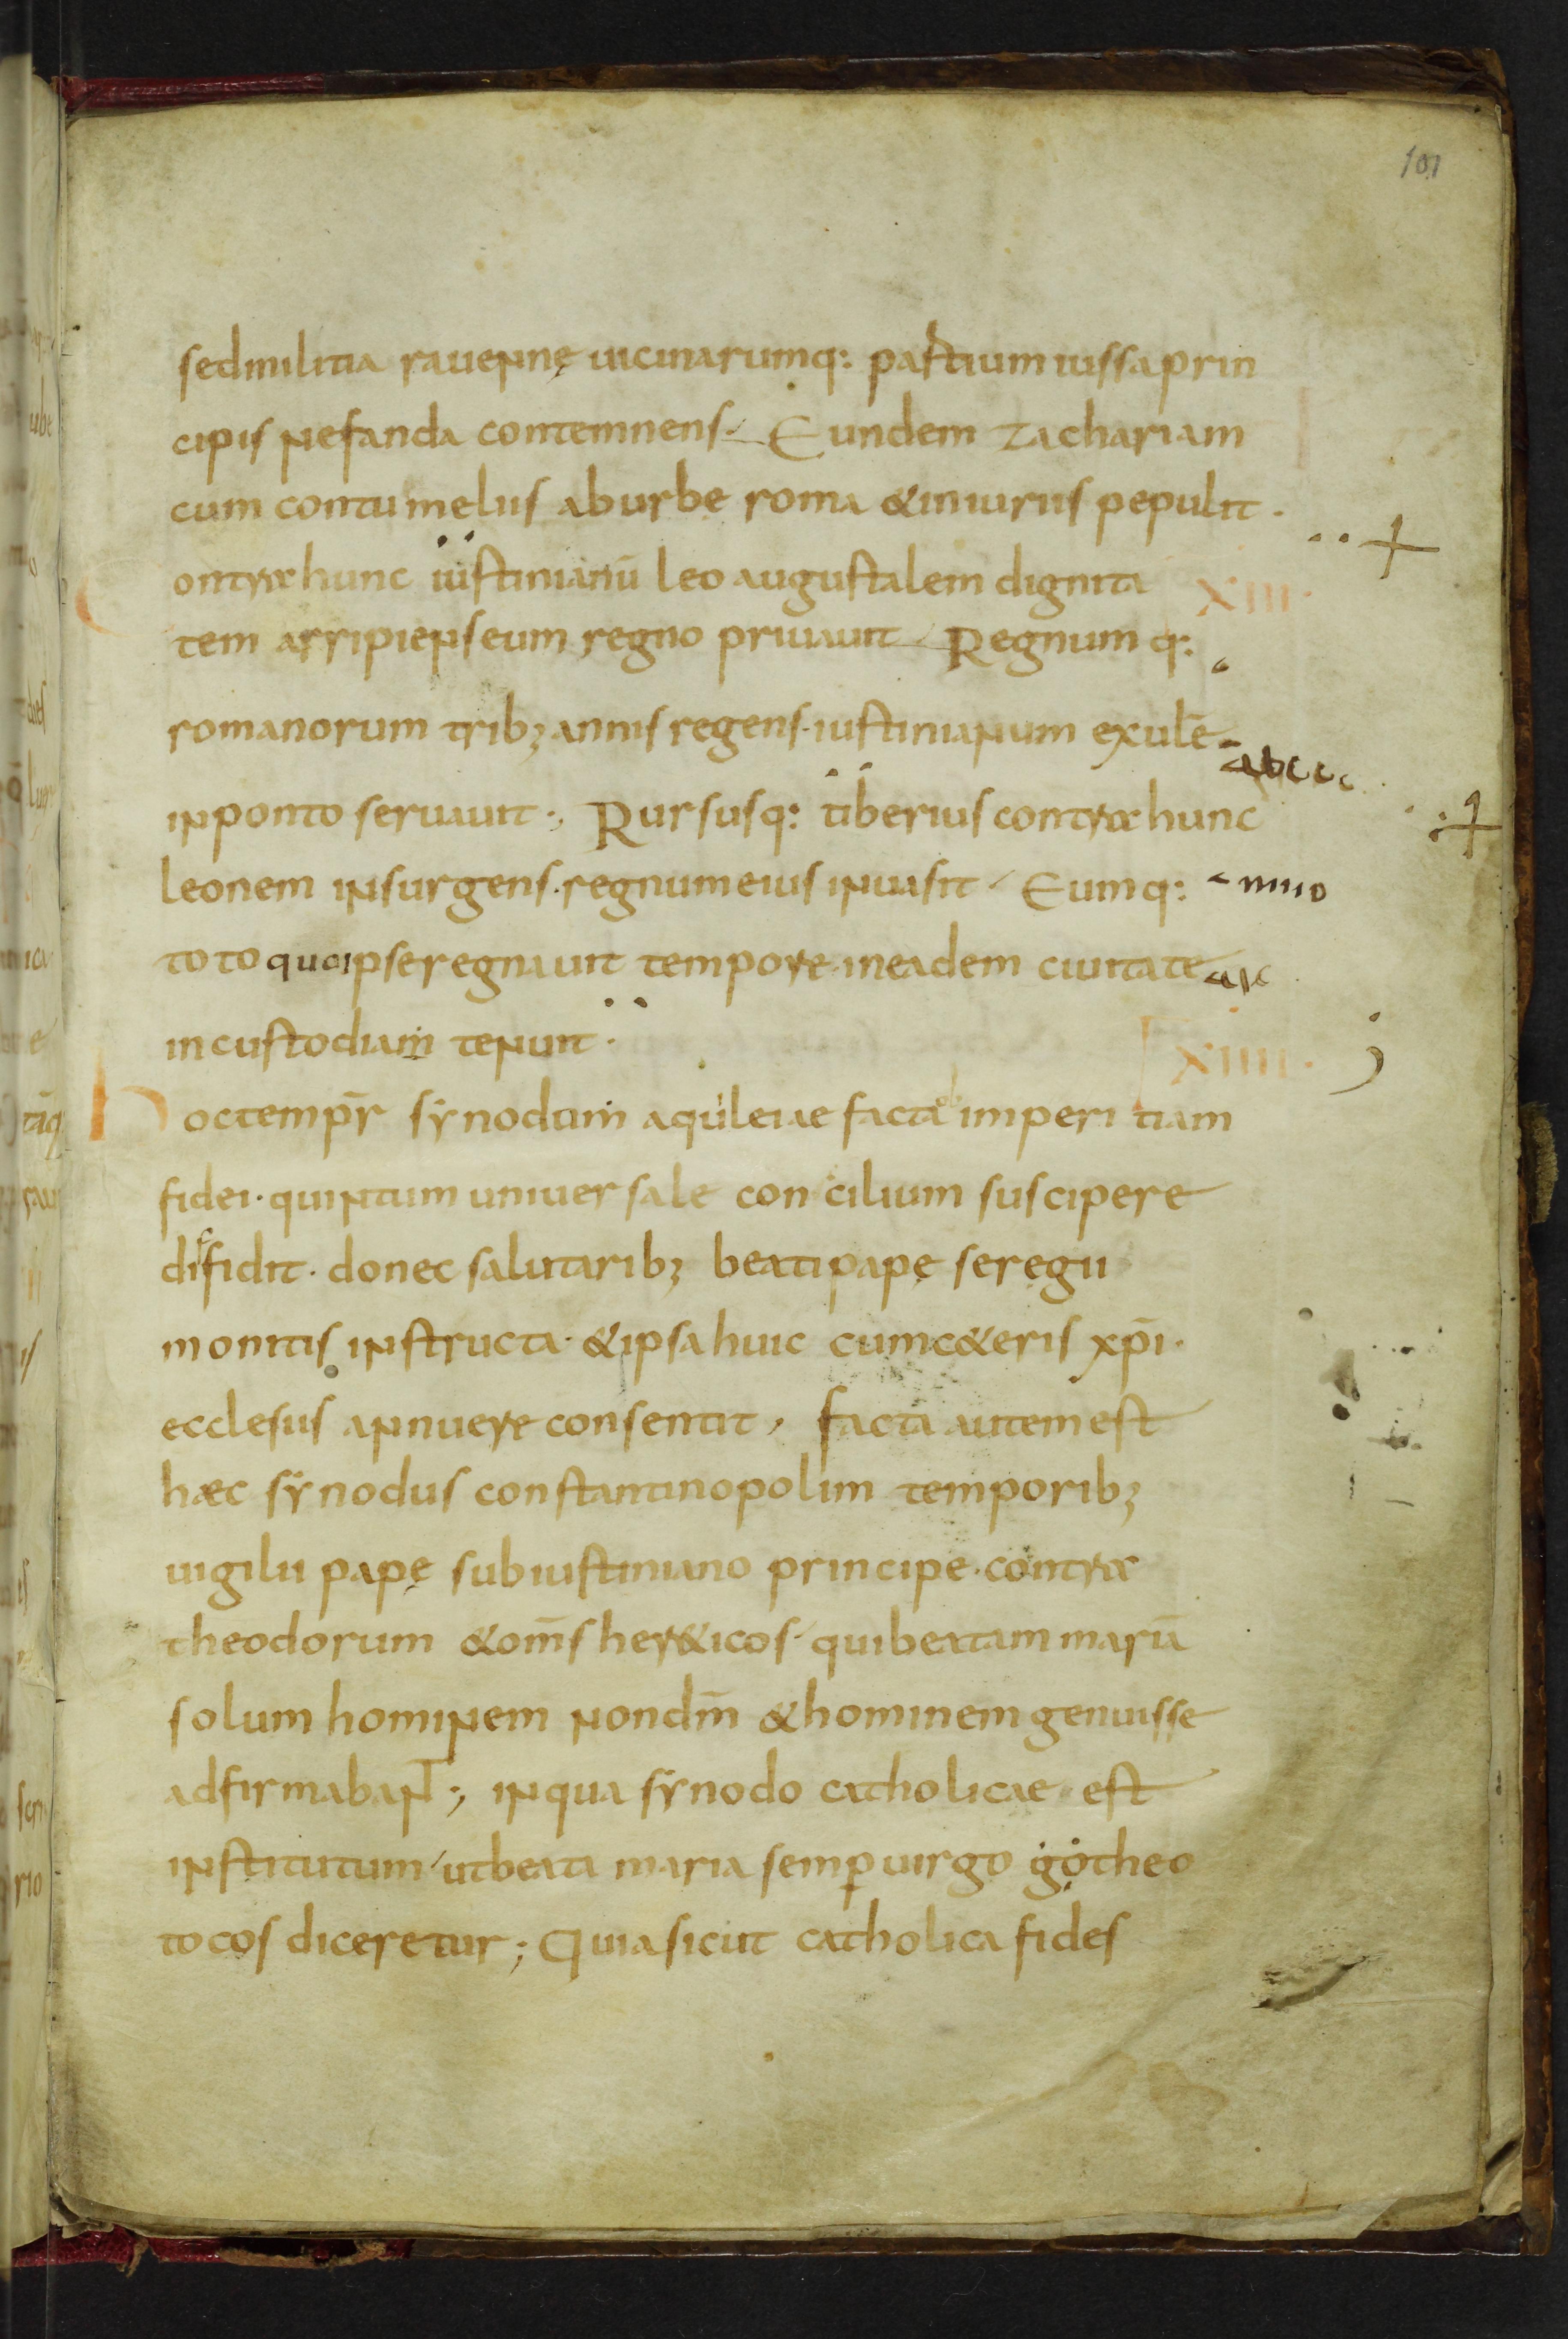 101
sedmilitia rauennę uicinarumq: partium iussaprin
cipis nefanda contemnens. Eundem zachariam
cum contumeliis aburbe roma &iniuriis pepulit.
Contra hunc iustinianū leo augustalem dignita XIII.
tem arripienseum regno priuauit. Regnum q:
romanorum trib; annis regens. iustinianum exulē
abccc
inponto seruauit; Rursusq: tiberius contra hunc
leonem insurgens. regnumeius inuasit. Eumq:
toto quoipseregnauit tempore. ineadem ciuitate
incustodiam tenuit. XIIII.
hoctempr̄ synodum aquileiae factā imperitiam
fidei. quintum uniuersale concilium suscipere
diffidit. donec salutarib; beatipapę seregii
monitis instructa. &ipsahuic cumc&eris xp̄i.
ecclesiis annuere consentit, facta autemest
haec synodus constantinopolim temporib;
uigilii papę subiustiniano principe. contra
theodorum &om̄s her&icos. quibeatam mariā
solum hominem nondm̄ &hominem genuisse
adfirmabant; inqua synodo catholicae est
institutum utbeata maria semꝑ uirgo gotheo
tocos diceretur; Quiasicut catholica fides